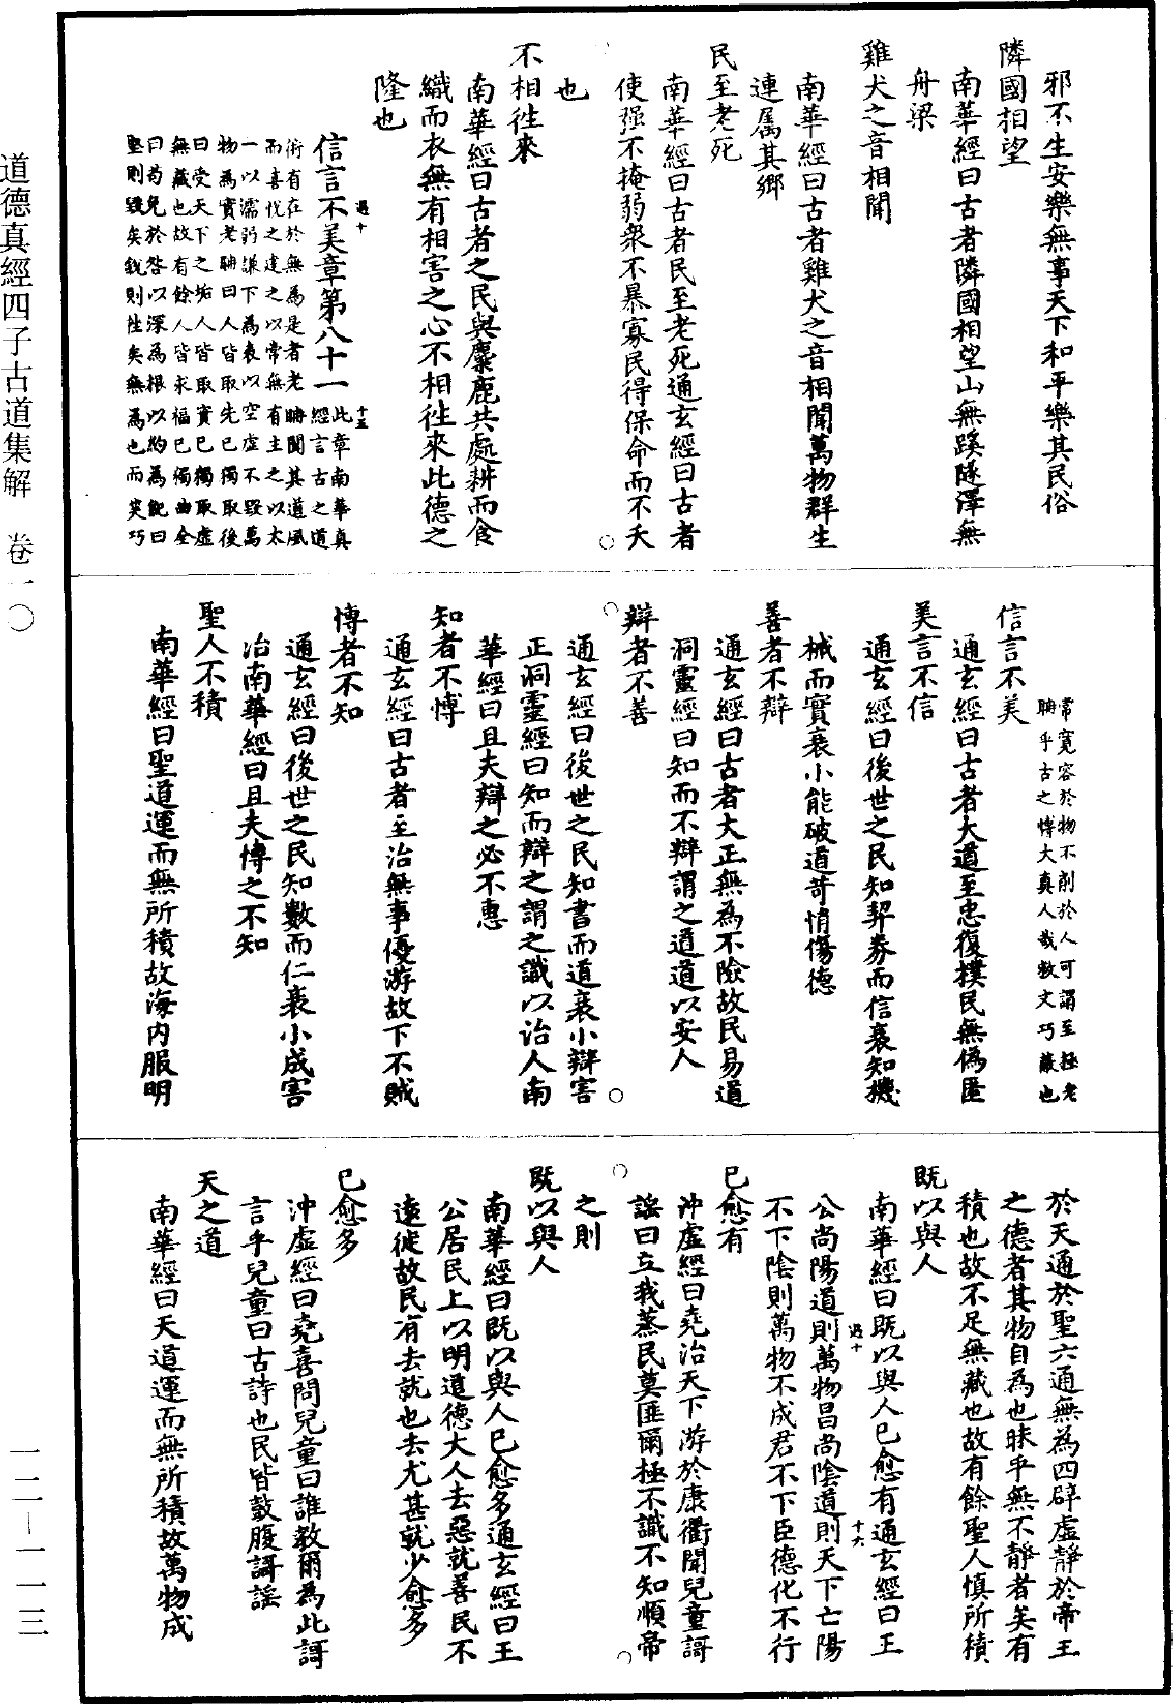 邪不生安樂無事天下和平樂其民俗
隣國相望
南華經曰古者隣國相望山無蹊隧澤無
舟梁
雞犬之音相聞
南華經曰古者雞犬之音相聞萬物群生
連属其鄉
民至老死
南華經曰古者民至老死通玄經曰古者
使强不掩弱衆不暴寡民得保命而不夭
也
不相徃來
南華經曰古者之民與麋鹿共處耕而食
織而衣無有相害之心不相徃來此德之
隆也
信言不美章第八十一
此章南華真
經言古之道
術有在於無為是者老聃聞其道風
而喜恱之建之以常無有主之以太
一以濡弱謙下為表以空虛不毀萬
物為實老聃曰人皆取先已獨取後
曰受天下之垢人皆取實已獨取虛
無藏也故有餘人皆求福已獨曲全
曰苟免於咎以深為根以約為紀曰
堅則毀矣銳則挫矣無為也而笑巧
常寬容於物不削於人可謂至極老
聃乎古之愽大真人哉敇文巧蔽也
信言不美
通玄經曰古者大道至忠復樸民無偽匿
美言不信
通玄經曰後世之民知契券而信衰知機
械而實衰小能破道苛悄傷德
善者不辯
通玄經曰古者大正無為不險故民易道
洞靈經曰知而不辯謂之道道以安人
辯者不善
通玄經曰後世之民知書而道衰小辯害
正洞靈經曰知而辯之謂之識以治人南
華經曰且夫辯之必不惠
知者不愽
通玄經曰古者至治無事優游故下不賊
博者不知
通玄經曰後世之民知數而仁衰小成害
治南華經曰且夫愽之不知
聖人不積
南華經曰聖道運而無所積故海内服明
於天通於聖六通無為四辟虛靜於帝王
之德者其物自為也昧乎無不靜者矣有
積也故不足無藏也故有餘聖人慎所積
既以與人
南華經曰既以與人已愈有通玄經曰王
公尚陽道則萬物昌尚陰道則天下亡陽
不下陰則萬物不成君不下臣德化不行
已愈有
沖虛經曰堯治天下游於康衢聞兒童謌
謡曰立我蒸民莫匪爾極不識不知順帝
之則
既以與人
南華經曰既以與人已愈多通玄經曰王
公居民上以明道德大人去惡就善民不
遠徙故民有去就也去尤甚就少愈多
已愈多
沖虛經曰堯喜問兒童曰誰教爾為此謌
言乎兒童曰古詩也民皆鼓腹謌謡
天之道
南華經曰天道運而無所積故萬物成
道德真經四子古道集解　卷一〇
一二－一一三